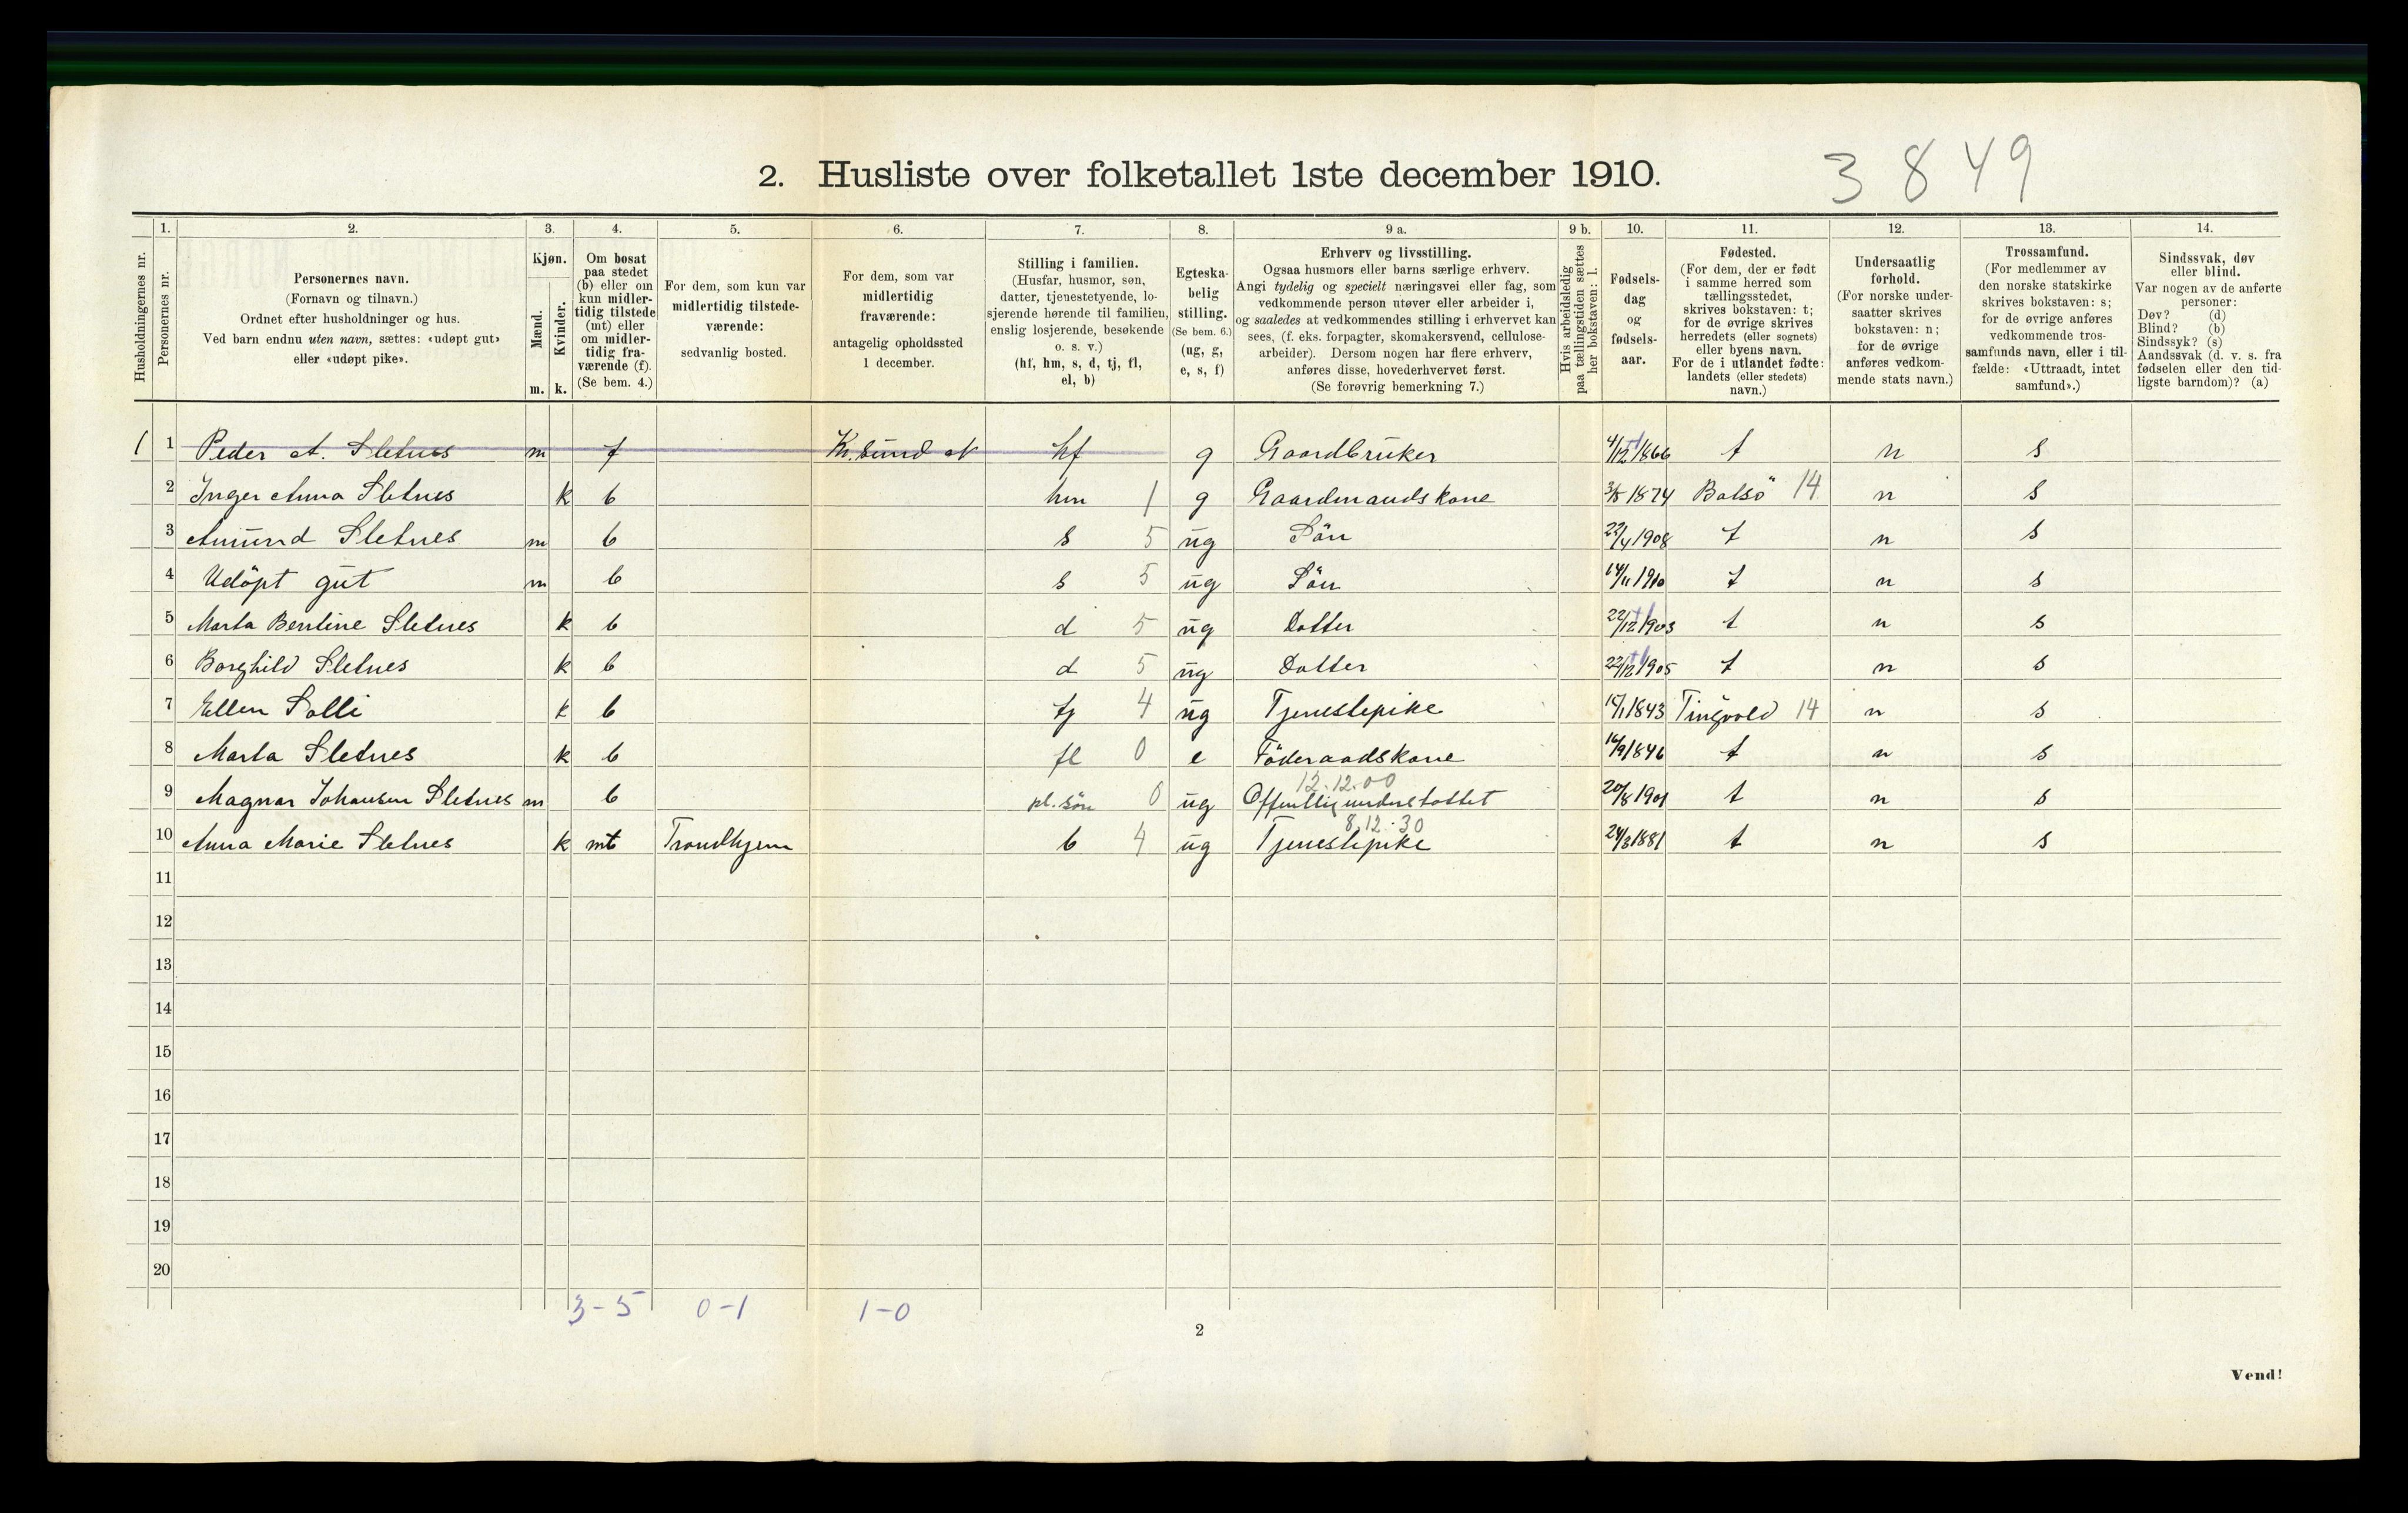 2. Husliste over folketallet 1ste december 1910.
3849
Husholdningernes nr.
1. Personernes nr.
2. Personernes navn.
(Fornavn og tilnavn.)
Ordnet efter husholdninger og hus.
Ved barn endnu uten navn, sættes: «udøpt gut»
eller «udøpt pike».
3. Kjøn.
Mænd. m.
Kvinder. k.
4. Om bosat
paa stedet
(b) eller om
kun midler-
tidig tilstede
(mt) eller
om midler-
tidig fra-
værende (f).
(Se bem. 4.)
5. For dem, som kun var
midlertidig tilstede-
værende:
sedvanlig bosted.
6. For dem, som var
midlertidig
fraværende:
antagelig opholdssted
1 december.
7. Stilling i familien.
(Husfar, husmor, søn,
datter, tjenestetyende, lo-
sjerende hørende til familien,
enslig losjerende, besøkende
o. s. v.)
(hf, hm, s, d, tj, fl,
el, b)
8. Egteska-
belig
stilling.
(Se bem. 6.)
(ug, g,
e, s, f)
9 a. Erhverv og livsstilling.
Ogsaa husmors eller barns særlige erhverv.
Angi tydelig og specielt næringsvei eller fag, som
vedkommende person utøver eller arbeider i,
og saaledes at vedkommendes stilling i erhvervet kan
sees, (f. eks. forpagter, skomakersvend, cellulose-
arbeider). Dersom nogen har flere erhverv,
anføres disse, hovederhvervet først.
(Se forøvrig bemerkning 7.)
9 b. Hvis arbeidsledig
paa tællingstiden sættes
her bokstaven: l.
10. Fødsels-
dag
og
fødsels-
aar.
11. Fødested.
(For dem, der er født
i samme herred som
tællingsstedet,
skrives bokstaven: t;
for de øvrige skrives
herredets (eller sognets)
eller byens navn.
For de i utlandet fødte:
landets (eller stedets)
navn.)
12. Undersaatlig
forhold.
(For norske under-
saatter skrives
bokstaven: n;
for de øvrige
anføres vedkom-
mende stats navn.)
13. Trossamfund.
(For medlemmer av
den norske statskirke
skrives bokstaven: s;
for de øvrige anføres
vedkommende tros-
samfunds navn, eller i til-
fælde: «Uttraadt, intet
samfund».)
14. Sindssvak, døv
eller blind.
Var nogen av de anførte
personer:
Døv? (d)
Blind? (b)
Sindssyk? (s)
Aandssvak (d. v. s. fra
fødselen eller den tid-
ligste barndom)? (a)
1 1 Peder A. Sletnes m f Kr.sund N hf g Gaardbruker 4/12 1866 t n s
2 Inger Anna Sletnes k b hm 1 g Gaardmandskone 3/5 1874 Bolsö 14 n s
3 Amund Sletnes m b s 5 ug Sön 22/4 1908 t n s
4 Udöpt gut m b s 5 ug Sön 14/11 1910 t n s
5 Marta Bentine Sletnes k b d 5 ug Datter 22/12 1903 t n s
6 Borghild Sletnes k b d 5 ug Datter 22/12 1905 t n s
7 Ellen Solli k b tj 4 ug Tjenestepike 15/1 1843 Tingvold 14 n s
8 Marta Sletnes k b fl 0 e Föderaadskone 16/9 1846 t n s
12.12.00
9 Magnar Johansen Sletnes m b pl. sön 0 ug Offentlig understöttet 20/8 1901 t n s
8.12.30
10 Anna Marie Sletnes k mt Trondhjem b 4 ug Tjenestepike 24/3 1881 t n s
11
12
13
14
15
16
17
18
19
20
3-5 0-1 1-0
2
Vend!